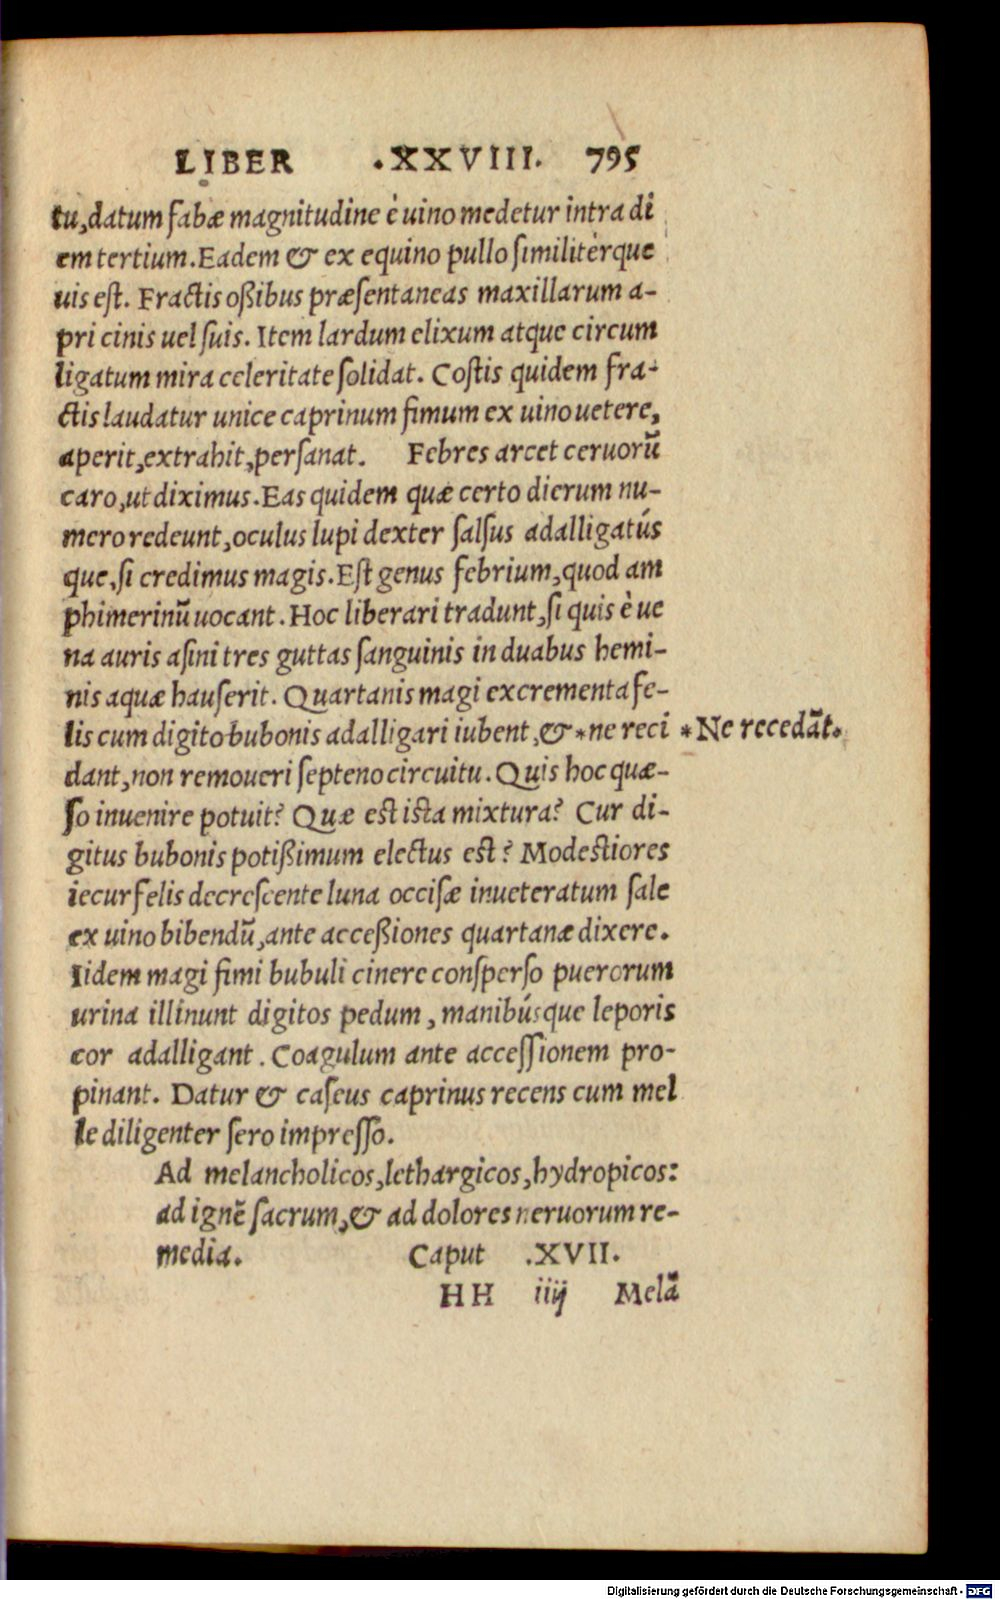 LIBER .XXVIII. 795
tu,datum fabæ magnitudine è uino medetur intra di
em tertium.Eadem & ex equino pullo similitérque
uis est. Fractis oßibus præsentaneas maxillarum a-
pri cinis uel suis. Item lardum elixum atque circum
ligatum mira celeritate solidat. Costis quidem fra-
ctis laudatur unice caprinum fimum ex uino uetere,
aperit,extrahit,persanat. Febres arcet ceruorũ
caro,ut diximus.Eas quidem quæ certo dierum nu-
mero redeunt,oculus lupi dexter salsus adalligatús
que,si credimus magis.Est genus febrium,quod am
phimerinũ uocant.Hoc liberari tradunt,si quis è ue
na auris asini tres guttas sanguinis in duabus hemi-
nis aquæ hauserit. Quartanis magi excrementa fe-
lis cum digito bubonis adalligari iubent,& *ne reci
*Ne recedãt.
dant,non remoueri septeno circuitu.Quis hoc quæ-
so inuenire potuit? Quæ est ista mixtura? Cur di-
gitus bubonis potißimum electus est? Modestiores
iecur felis decrescente luna occisæ inueteratum sale
ex uino bibendũ,ante acceßiones quartanæ dixere.
Iidem magi fimi bubuli cinere consperso puerorum
urina illinunt digitos pedum, manibúsque leporis
cor adalligant. Coagulum ante accessionem pro-
pinant. Datur & caseus caprinus recens cum mel
le diligenter sero impresso.
Ad melancholicos,lethargicos,hydropicos:
ad ignẽ sacrum,& ad dolores neruorum re-
media. Caput .XVII.
HH iiij Melã
Digitalisierung gefördert durch die Deutsche Forschungsgemeinschaft - DFG